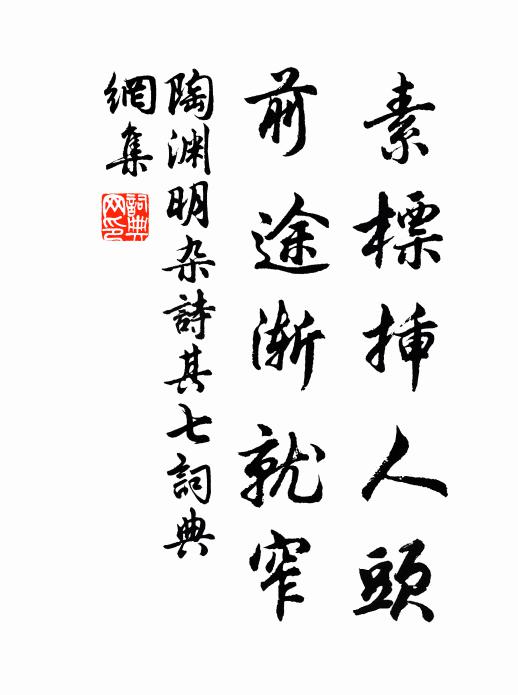 素標揷人頭
前途漸就窄
陶渊明杂詩其七詞典
網集
詞典
网印